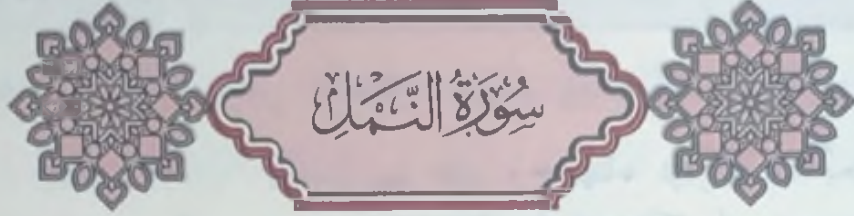 سُورَةُ النَّمَلِ